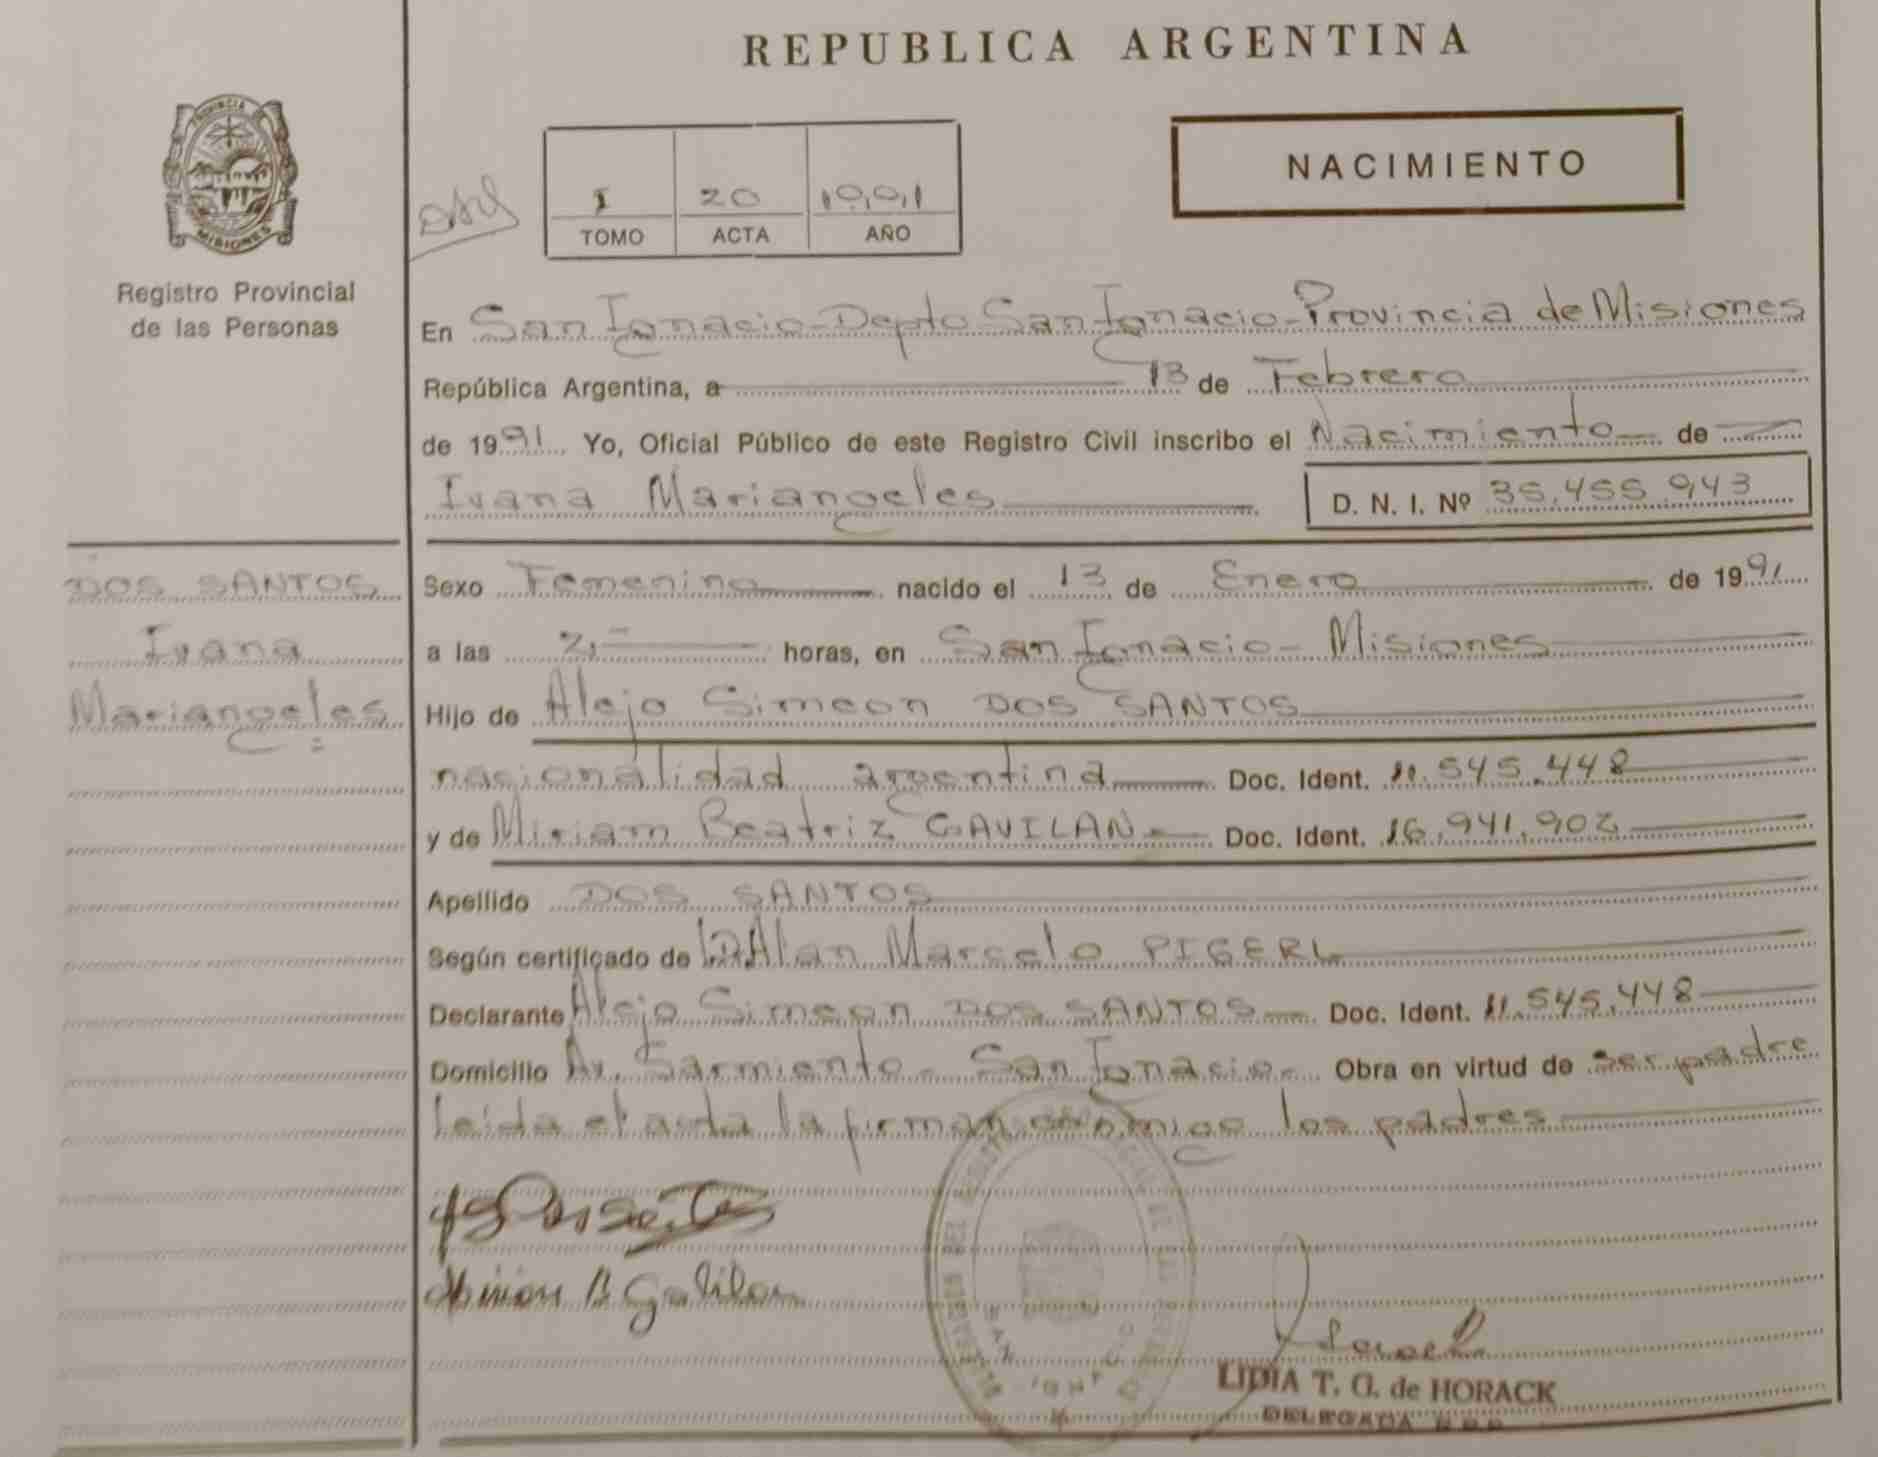 REPUBLICA ARGENTINA
PROVINCIA
MISIONES
Registro Provincial
de las Personas
I 20 1991
TOMO ACTA AÑO
NACIMIENTO
En San Ignacio-Depto San Ignacio-Provincia de Misiones
República Argentina, a 13 de Febrero
de 1991 Yo, Oficial Público de este Registro Civil inscribo el Nacimiento de
Ivana Mariangeles
D. N. I. Nº 35.455.943
DOS SANTOS
Ivana
Mariangeles
Sexo Femenino nacido el 13 de Enero de 1991
a las 2,- horas, en San Ignacio- Misiones
Hijo de Alejo Simeon DOS SANTOS
nacionalidad argentina Doc. Ident. 11.545.448
y de Miriam Beatriz GAVILAN Doc. Ident. 16.941.902
Apellido DOS SANTOS
Según certificado de Alan Marcelo PIGERL
Declarante Alejo Simeon DOS SANTOS Doc. Ident. 11.545.448
Domicilio Av. Sarmiento- San Ignacio- Obra en virtud de ser padre
leída el acta la firman conmigo los padres
LIDIA T. G. de HORACK
DELEGADA